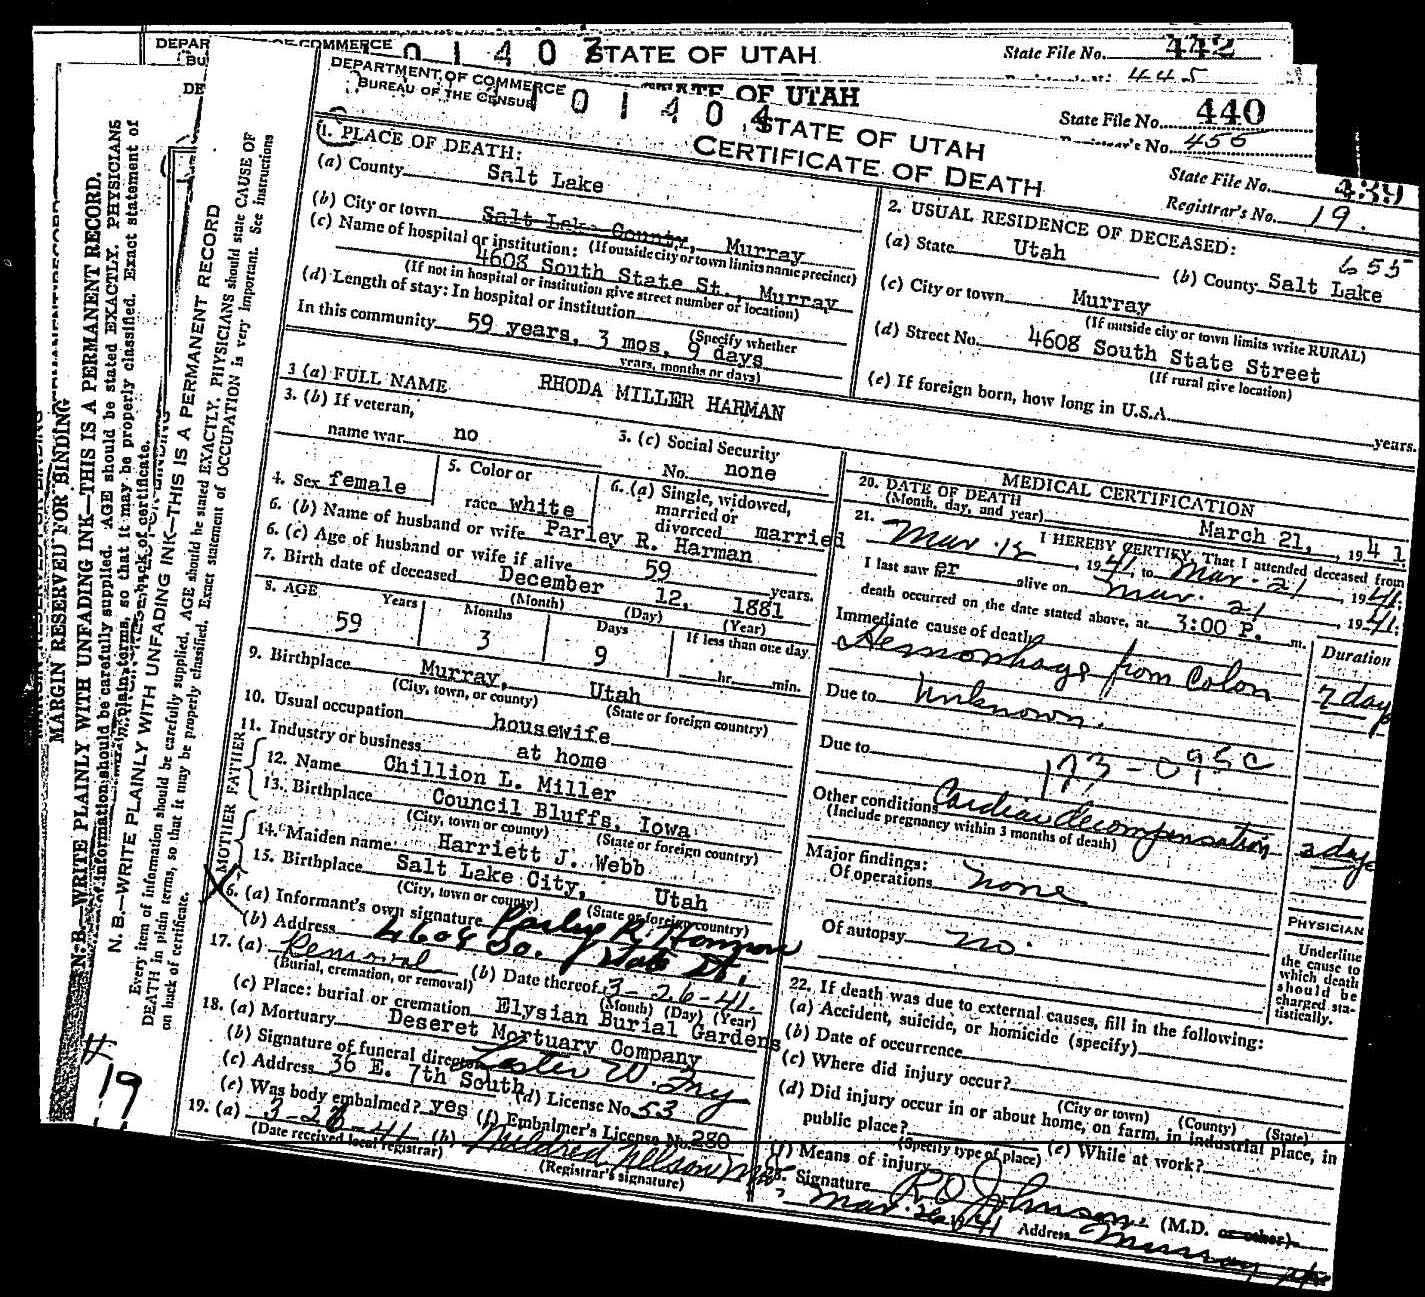 DEPARTMENT OF COMMERCE
BUREAU OF THE CENSUS
STATE OF UTAH
State File No. 442
445
STATE OF UTAH
State File No. 440
Registrar's No. 456
STATE OF UTAH
CERTIFICATE OF DEATH
State File No. 439
Registrar's No. 19.
1. PLACE OF DEATH:
(a) County Salt Lake
(b) City or town Salt Lake County, Murray
(If outside city or town limits name precinct)
(c) Name of hospital or institution:
4608 South State St., Murray
(If not in hospital or institution give street number or location)
(d) Length of stay: In hospital or institution
(Specify whether
In this community 59 years, 3 mos, 9 days
years, months or days)
2. USUAL RESIDENCE OF DECEASED:
655
(a) State Utah (b) County Salt Lake
(c) City or town Murray
(If outside city or town limits write RURAL)
(d) Street No. 4608 South State Street
(If rural give location)
(e) If foreign born, how long in U.S.A. years.
3 (a) FULL NAME RHODA MILLER HARMAN
3. (b) If veteran,
name war no
3. (c) Social Security
No. none
4. Sex female
5. Color or
race white
6. (a) Single, widowed,
married or
divorced married
6. (b) Name of husband or wife Parley R. Harman
6. (c) Age of husband or wife if alive 59 years.
7. Birth date of deceased December 12, 1881
(Month) (Day) (Year)
8. AGE Years Months Days If less than one day
59 3 9 hr. min.
9. Birthplace Murray, Utah
(City, town, or county) (State or foreign country)
10. Usual occupation housewife
11. Industry or business at home
FATHER
12. Name Chillion L. Miller
13. Birthplace Council Bluffs, Iowa
(City, town or county) (State or foreign country)
MOTHER
14. Maiden name Harriett J. Webb
15. Birthplace Salt Lake City, Utah
(City, town or county) (State or foreign country)
16. (a) Informant's own signature Parley R. Harman
(b) Address 4608 So. State St.
17. (a) Removal (b) Date thereof 3-26-41.
(Burial, cremation, or removal) (Month) (Day) (Year)
(c) Place: burial or cremation Elysian Burial Gardens
18. (a) Mortuary Deseret Mortuary Company
(b) Signature of funeral director Lester W. Fry
(c) Address 36 E. 7th South (d) License No. 53
(e) Was body embalmed? yes (f) Embalmer's License No. 280
19. (a) 3-26-41 (b) Mildred Nelson
(Date received local registrar) (Registrar's signature)
MEDICAL CERTIFICATION
20. DATE OF DEATH
(Month, day, and year) March 21, 1941
21. I HEREBY CERTIFY, That I attended deceased from
Mar. 12, 1941, to Mar. 21, 1941.
I last saw her alive on Mar. 21, 1941.
death occurred on the date stated above, at 3:00 P. m.
Immediate cause of death
Duration
Hemorrhage from Colon 7 days
Due to Unknown.
Due to
173-095c
Other conditions Cardiac decompensation 2 days
(Include pregnancy within 3 months of death)
Major findings:
Of operations none
Of autopsy no.
PHYSICIAN
Underline
the cause to
which death
should be
charged sta-
tistically.
22. If death was due to external causes, fill in the following:
(a) Accident, suicide, or homicide (specify)
(b) Date of occurrence
(c) Where did injury occur?
(City or town) (County) (State)
(d) Did injury occur in or about home, on farm, in industrial place, in
public place? (e) While at work?
(Specify type of place)
(f) Means of injury
Signature R O Johnson (M.D. or other)
Mar. 26 1941 Address Murray
MARGIN RESERVED FOR BINDING
N. B.—WRITE PLAINLY WITH UNFADING INK—THIS IS A PERMANENT RECORD.
N. B.—WRITE PLAINLY WITH UNFADING INK—THIS IS A PERMANENT RECORD
Every item of information should be carefully supplied. AGE should be stated EXACTLY. PHYSICIANS should state CAUSE OF
DEATH in plain terms, so that it may be properly classified. Exact statement of OCCUPATION is very important. See instructions
on back of certificate.
#19